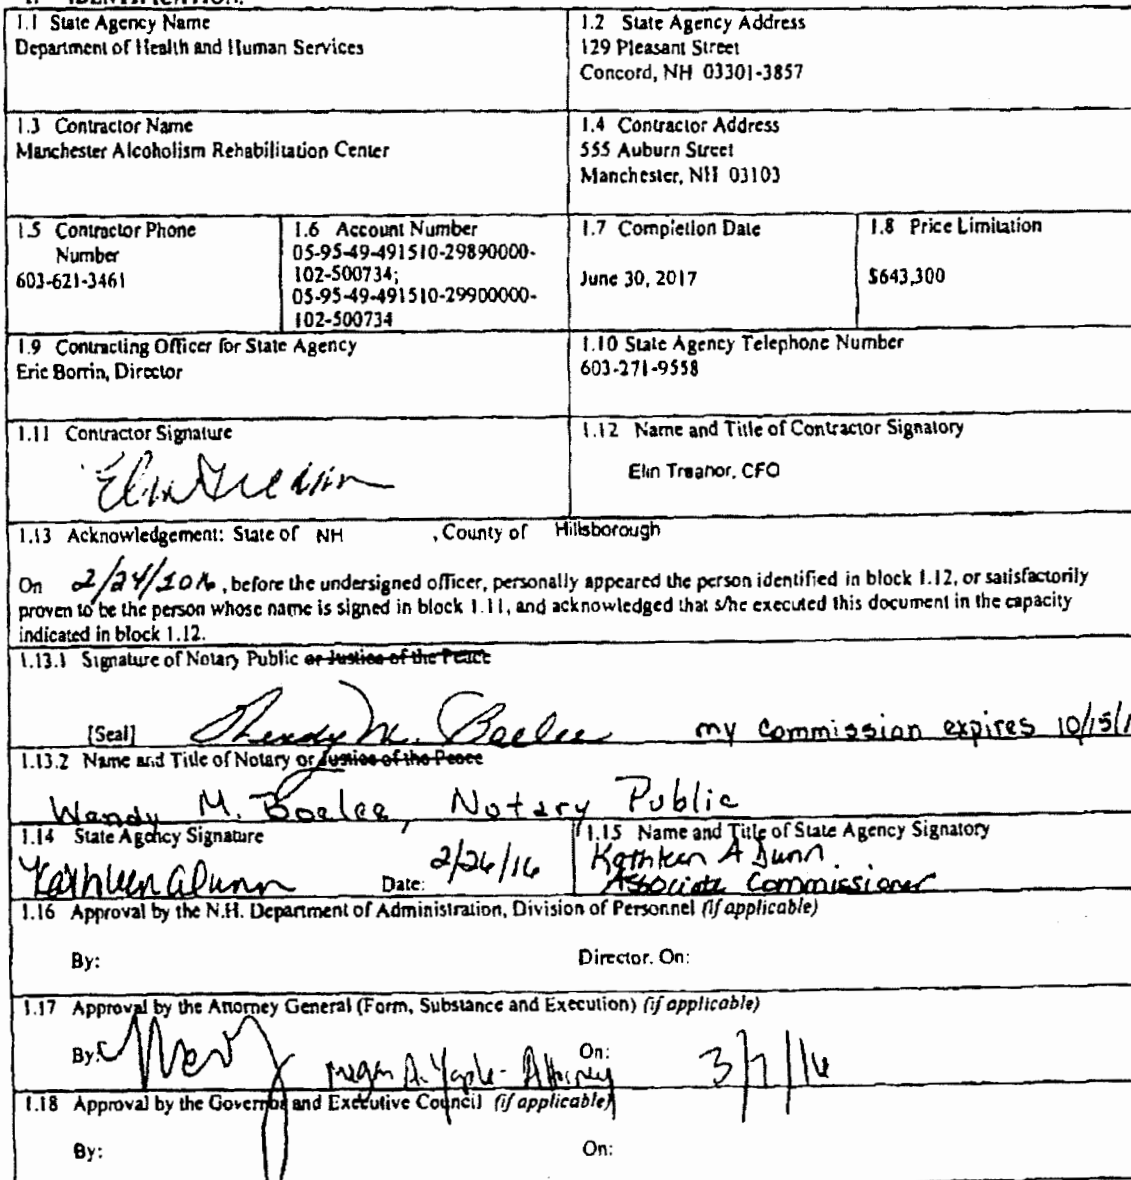 1.1 State Agency Name
Department of Health and Human Services
1.2 State Agency Address
129 Pleasant Street
Concord, NH 03301-3857
1.3 Contractor Name
Manchester Alcoholism Rehabilitation Center
1.4 Contractor Address
555 Auburn Street
Manchester, NH 03103
1.5 Contractor Phone
Number
603-621-3461
1.6 Account Number
05-95-49-491510-29890000-
102-500734;
05-95-49-491510-29900000-
102-500734
1.7 Completion Date
June 30, 2017
1.8 Price Limitation
$643,300
1.9 Contracting Officer for State Agency
Eric Borrin, Director
1.10 State Agency Telephone Number
603-271-9558
1.11 Contractor Signature
1.12 Name and Title of Contractor Signatory
Elin Treanor, CFO
1.13 Acknowledgement: State of NH , County of Hillsborough
On 2/24/2016, before the undersigned officer, personally appeared the person identified in block 1.12, or satisfactorily
proven to be the person whose name is signed in block 1.11, and acknowledged that s/he executed this document in the capacity
indicated in block 1.12.
1.13.1 Signature of Notary Public or Justice of the Peace
[Seal] Wendy M. Boelee my commission expires 10/15/1
1.13.2 Name and Title of Notary or Justice of the Peace
Wendy M. Boelee, Notary Public
1.14 State Agency Signature
Kathleen A Dunn Date: 2/26/16
1.15 Name and Title of State Agency Signatory
Kathleen A Dunn.
Associate Commissioner
1.16 Approval by the N.H. Department of Administration, Division of Personnel (if applicable)
By: Director, On:
1.17 Approval by the Attorney General (Form, Substance and Execution) (if applicable)
By: Megan A. Yaple - Attorney On: 3/7/16
1.18 Approval by the Governor and Executive Council (if applicable)
By: On: